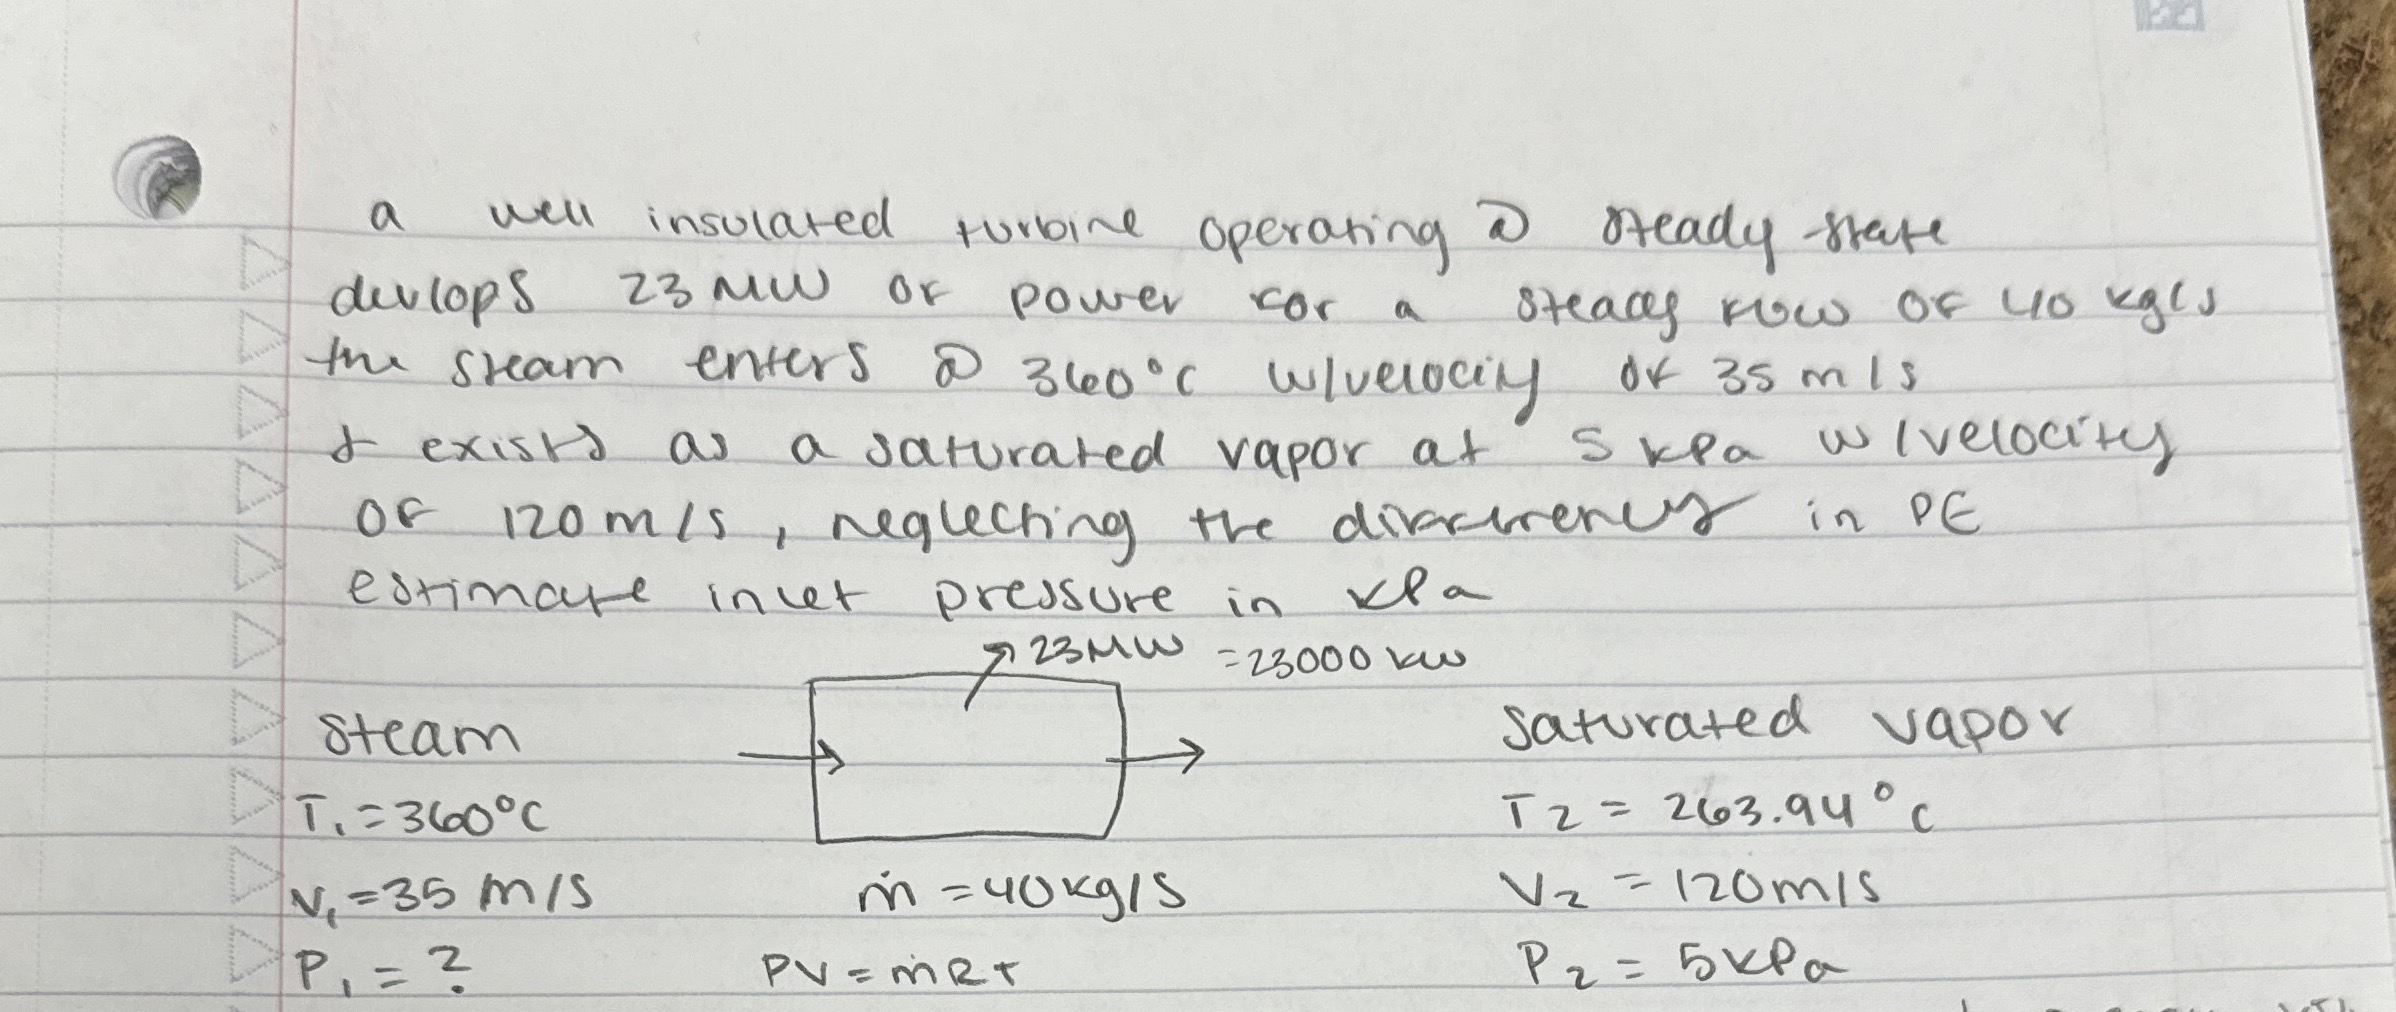 a well insulated turbine operating @ steady state
devlops 23 MW of power for a steady flow of 40 kg/s
the steam enters @ 360°C w/velociy of 35 m/s
& exists as a saturated vapor at 5 kPa w/velocity
of 120 m/s, neglecting the in PE
estimate inlet pressure in kPa
23MW = 23000 kW
steam saturated vapor
T₁ = 360°C T₂ = 263.94°C
V₁ = 35 m/s ṁ = 40 kg/s V₂ = 120 m/s
P₁ = ? PV = ṁRT P₂ = 5 kPa